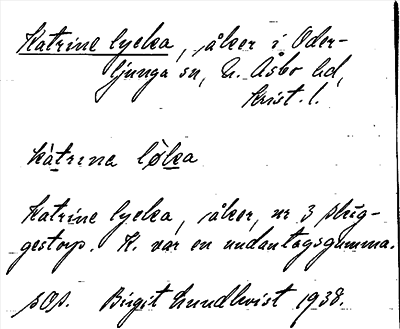 Katrine lycka, åker i Oder-
ljunga sn, N. Åsbo hd,
Krist. l.
kàtrına løka
Katrine lycka, åker, nr 3 Skig-
gestorp. K. var en undantagsgumma.
Birgit Lundkvist 1938.